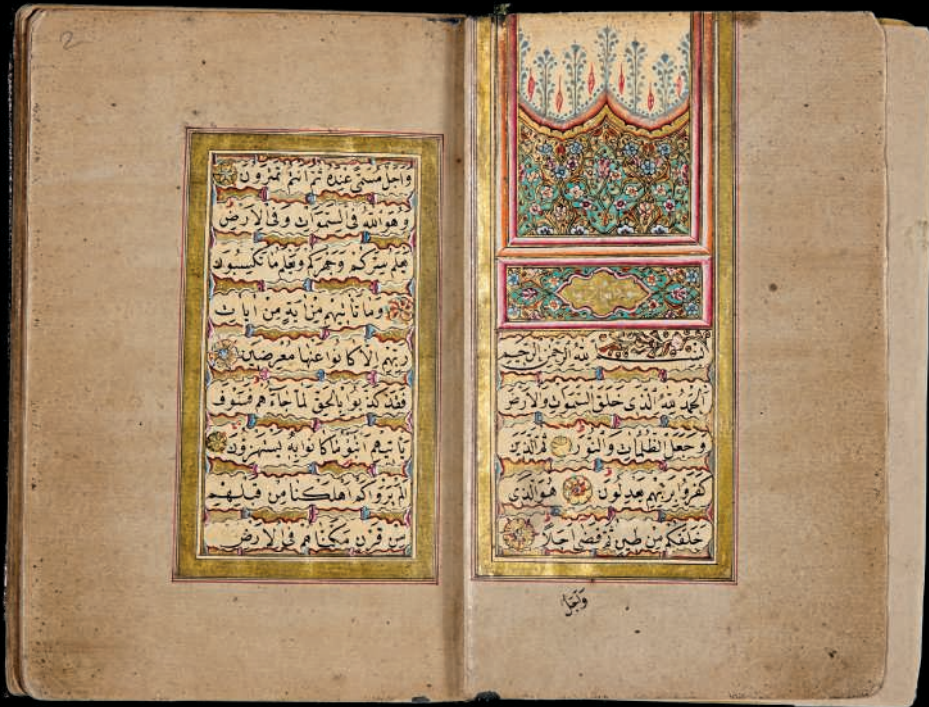 بسم الله الرحمن الرحيم
الحمد لله الذى خلق السموات ولارض
وجعل الظلمات والنور ثم الذين
كفروا بربهم يعدلون هو الذى
خلقكم من طين ثم قضى اجلا
واجل
2
واجل مسمى عنده ثم انتم تمترون
وهو الله فى السموات وفى الارض
يعلم سركم وجهركم ويعلم ما تكسبون
وما تأتيهم من اية من ايات
ربهم الا كانوا عنها معرضين
فقد كذبوا بالحق لما جاءهم فسوف
يأتيهم انبؤ ما كانوا به يستهزؤن
الم يروا كم اهلكنا من قبلهم
من قرن مكناهم فى الارض